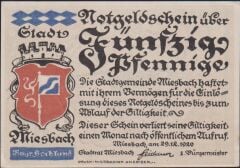 Notgeldschein über
Stadt
Fünfzig
Pfennige
Die Stadtgemeinde Miesbach haftet
mit ihrem Vermögen für die Einlö-
sung dieses Notgeldscheines bis zum
Ablauf der Giltigkeit.
Dieser Schein verliert seine Giltigkeit
einen Monat nach öffentlichem Aufruf.
Miesbach
Miesbach, am 29.12.1920
Stadtrat Miesbach
1. Bürgermeister
Bayr. Hochland